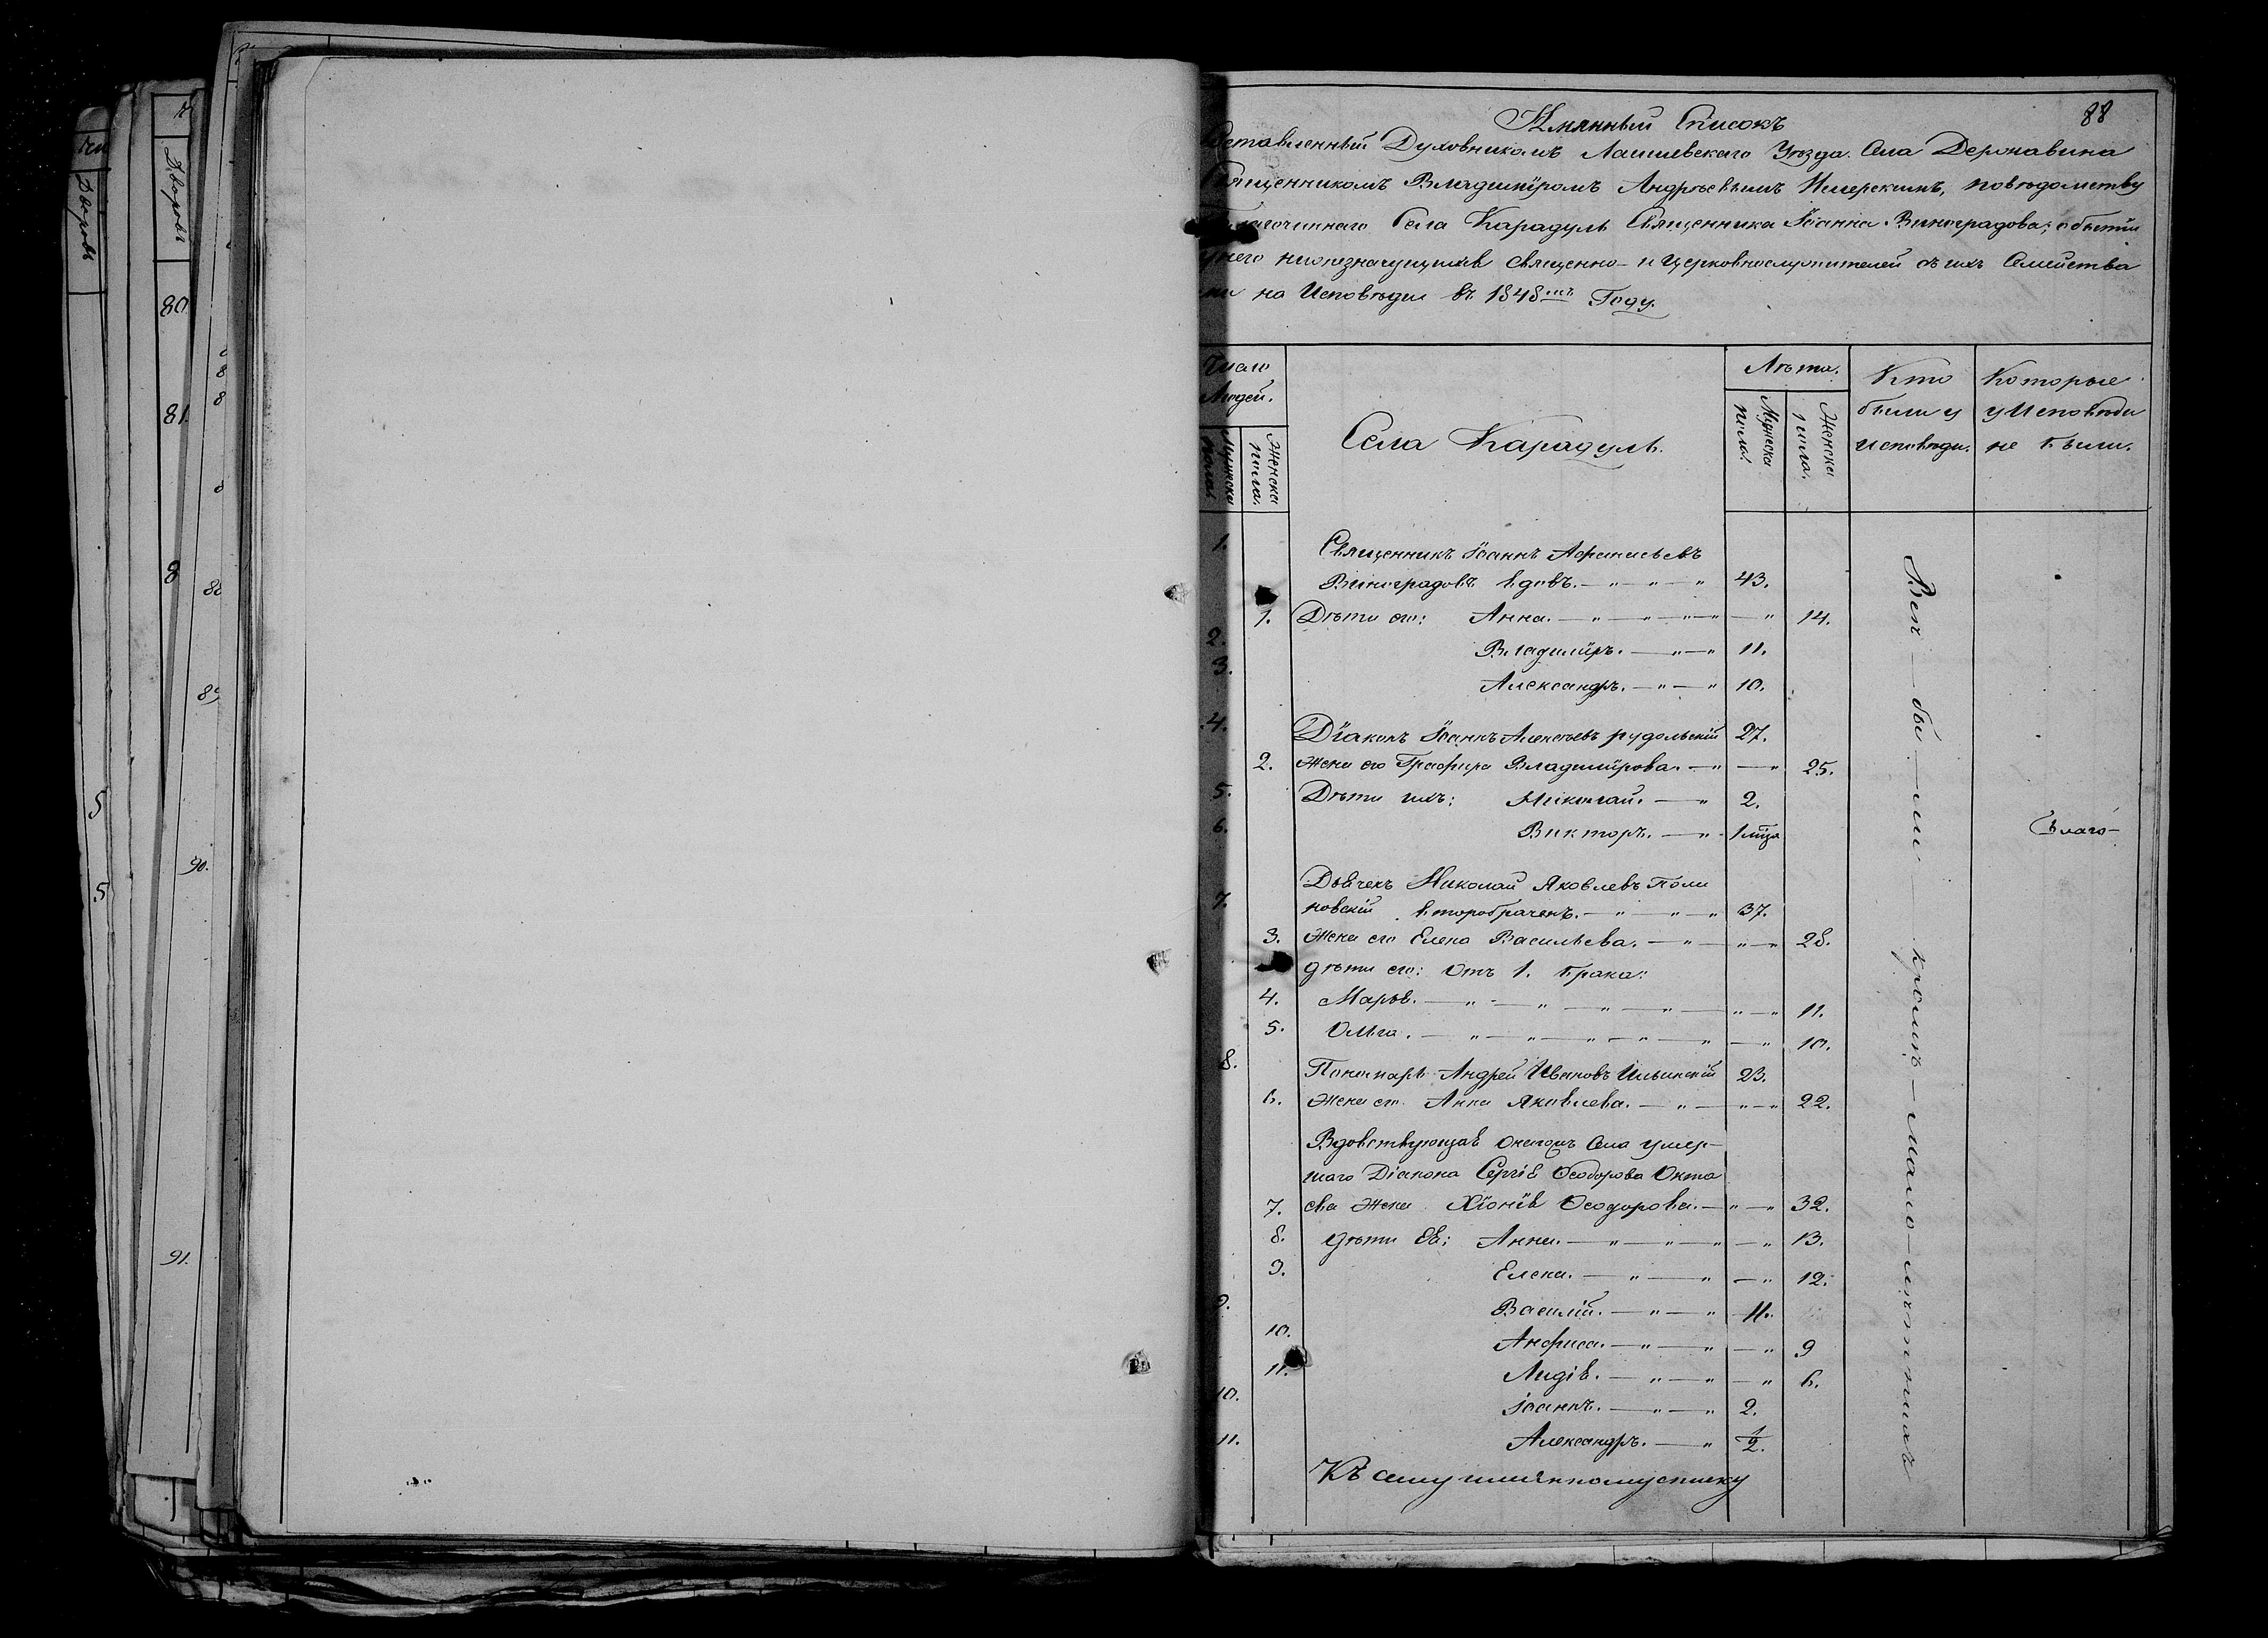 88
Имянный Списокъ
составленный Духовникомъ Лаишевскаго Уѣзда. Села Державина
Священникомъ Владиміромъ Андреевымъ Имерскимъ, повѣдомству
Благочиннаго Села Карадуль Священника Іоанна Виноградова; о бытіи
у него нижезначущихъ священно- и Церковнослужителей съ ихъ Семейства
ми на Исповѣди въ 1848мъ Году.
Число Людей.
Мужеска пола.
Женска пола.
Села Карадуль.
Лѣта.
Мужеска пола.
Женска пола.
Кто были у исповѣди.
Которые у Исповѣди не были.
1. Священникъ Іоаннъ Афанасьевъ
Виноградовъ вдовъ. — " — " — " 43.
1. Дѣти его: Анна. — " — " — " — " 14.
2. Владиміръ. — " — " 11.
3. Александръ. — " — " 10.
4. Діаконъ Іоаннъ Алексѣевъ рудольскій 27.
2. Жена его Графира Владимірова. — " — " 25.
5. Дѣти ихъ: Николай. — " 2.
6. Викторъ. — " 1 мца
7. Дьячекъ Николай Яковлевъ Поли
новскій второбраченъ. — " — " — " 37.
3. Жена его Елена Васильева. — " — " — " 28.
дѣти его: Отъ 1. брака:
4. Марья. — " — " — " — " — " — " 11.
5. Ольга. — " — " — " — " — " — " 10.
8. Пономарь Андрей Ивановъ Ильинскій 23.
6. Жена его Анна Яковлева. — " — " — " 22.
Вдовствующая онагожъ Села умер-
шаго Діакона Сергія Ѳеодорова Окта
7. ева Жена Хіонія Ѳеодорова. — " — " 32.
8. дѣти Ея: Анна. — " — " — " — " 13.
9. Елена. — " — " — " 12.
9. Василій. — " — " 11.
10. Анфиса. — " — " — " 9
11. Лидія. — " — " — " 6.
10. Іоаннъ. — " — " 2.
11. Александръ. — " 1/2.
Къ сему имянному списку
Всѣ — бы — ли — кромѣ — мало — лѣтнихъ
Благо-
Дворовъ
Дворовъ
80
81.
90.
91.
5
5